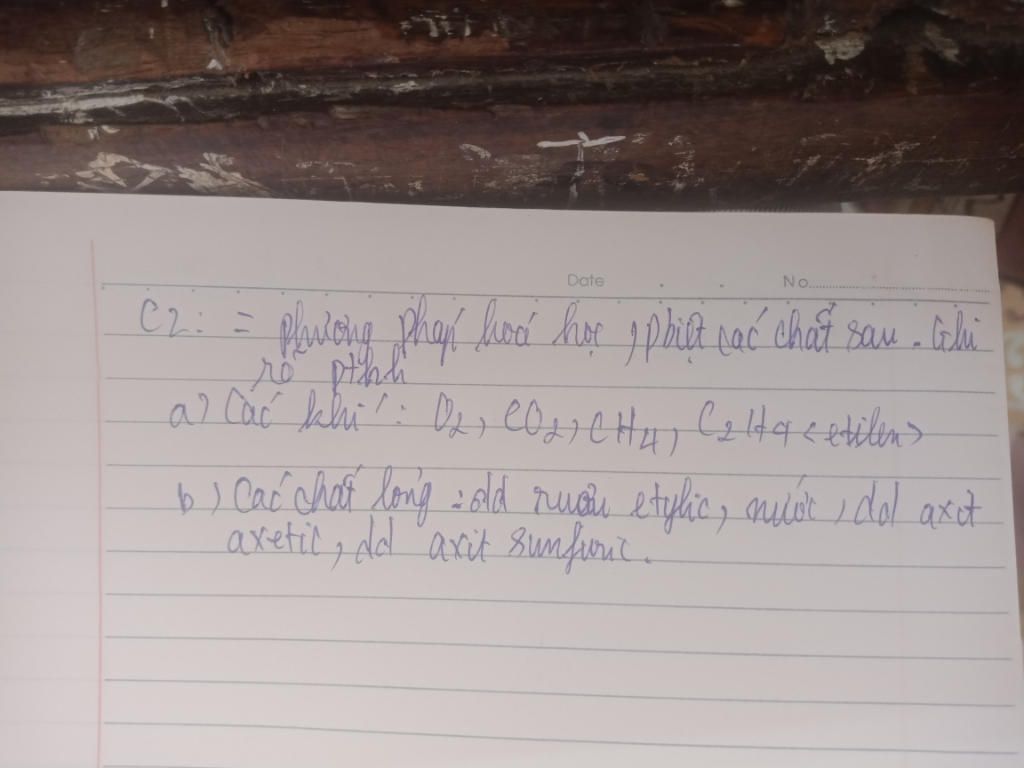 Date No.
C2: = phương pháp hoá học, pbiệt các chất sau. Ghi
rõ pthh
a) Các khí: O2, CO2, CH4, C2H4 <etilen>
b) Các chất lỏng: dd rượu etylic, nước, dd axit
axetic, dd axit sunfuric.